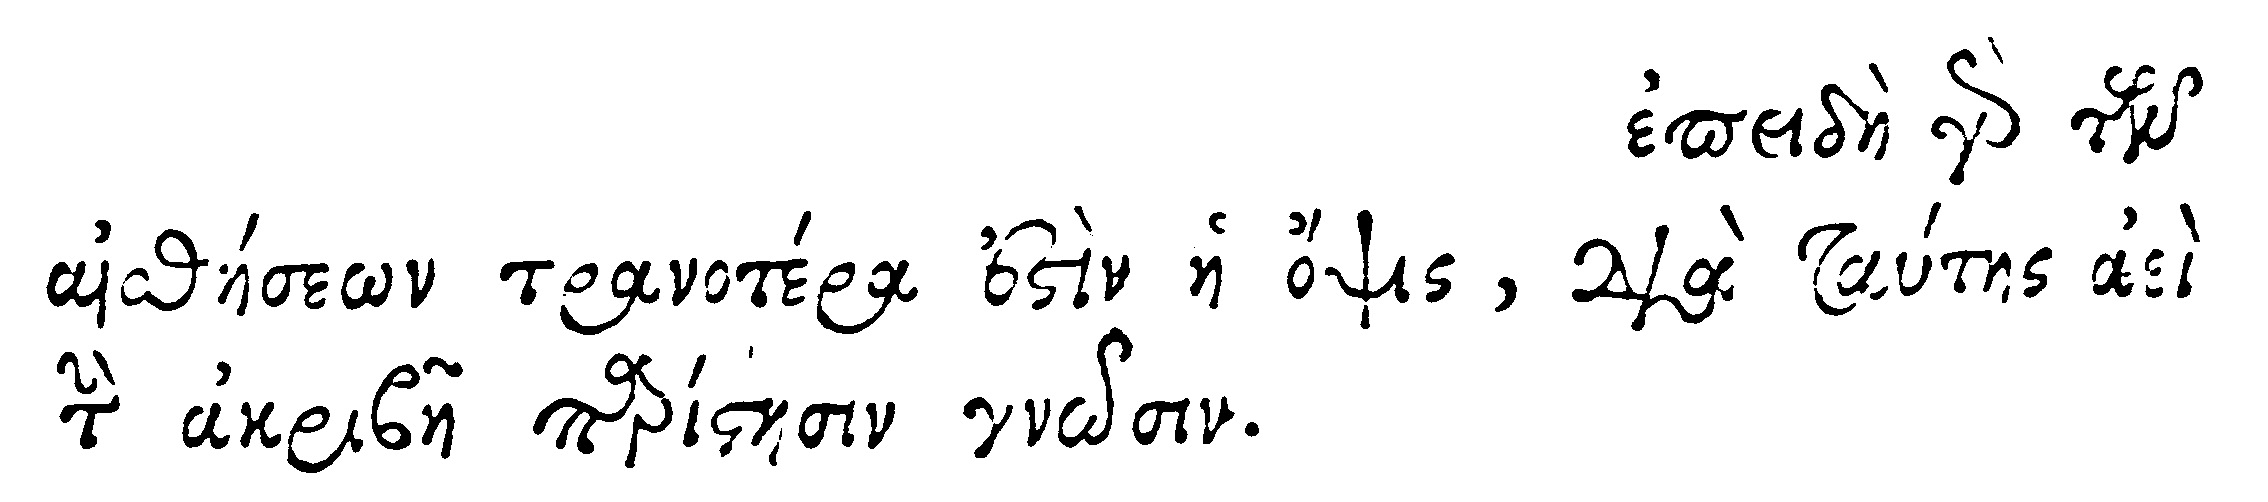 ἐπειδὴ γὰρ τῶν
αἰσθήσεων τρανοτέρα ἐστὶν ἡ ὄψις, διὰ ταύτης ἀεὶ
τὴν ἀκριβῆ παρίστησιν γνῶσιν.